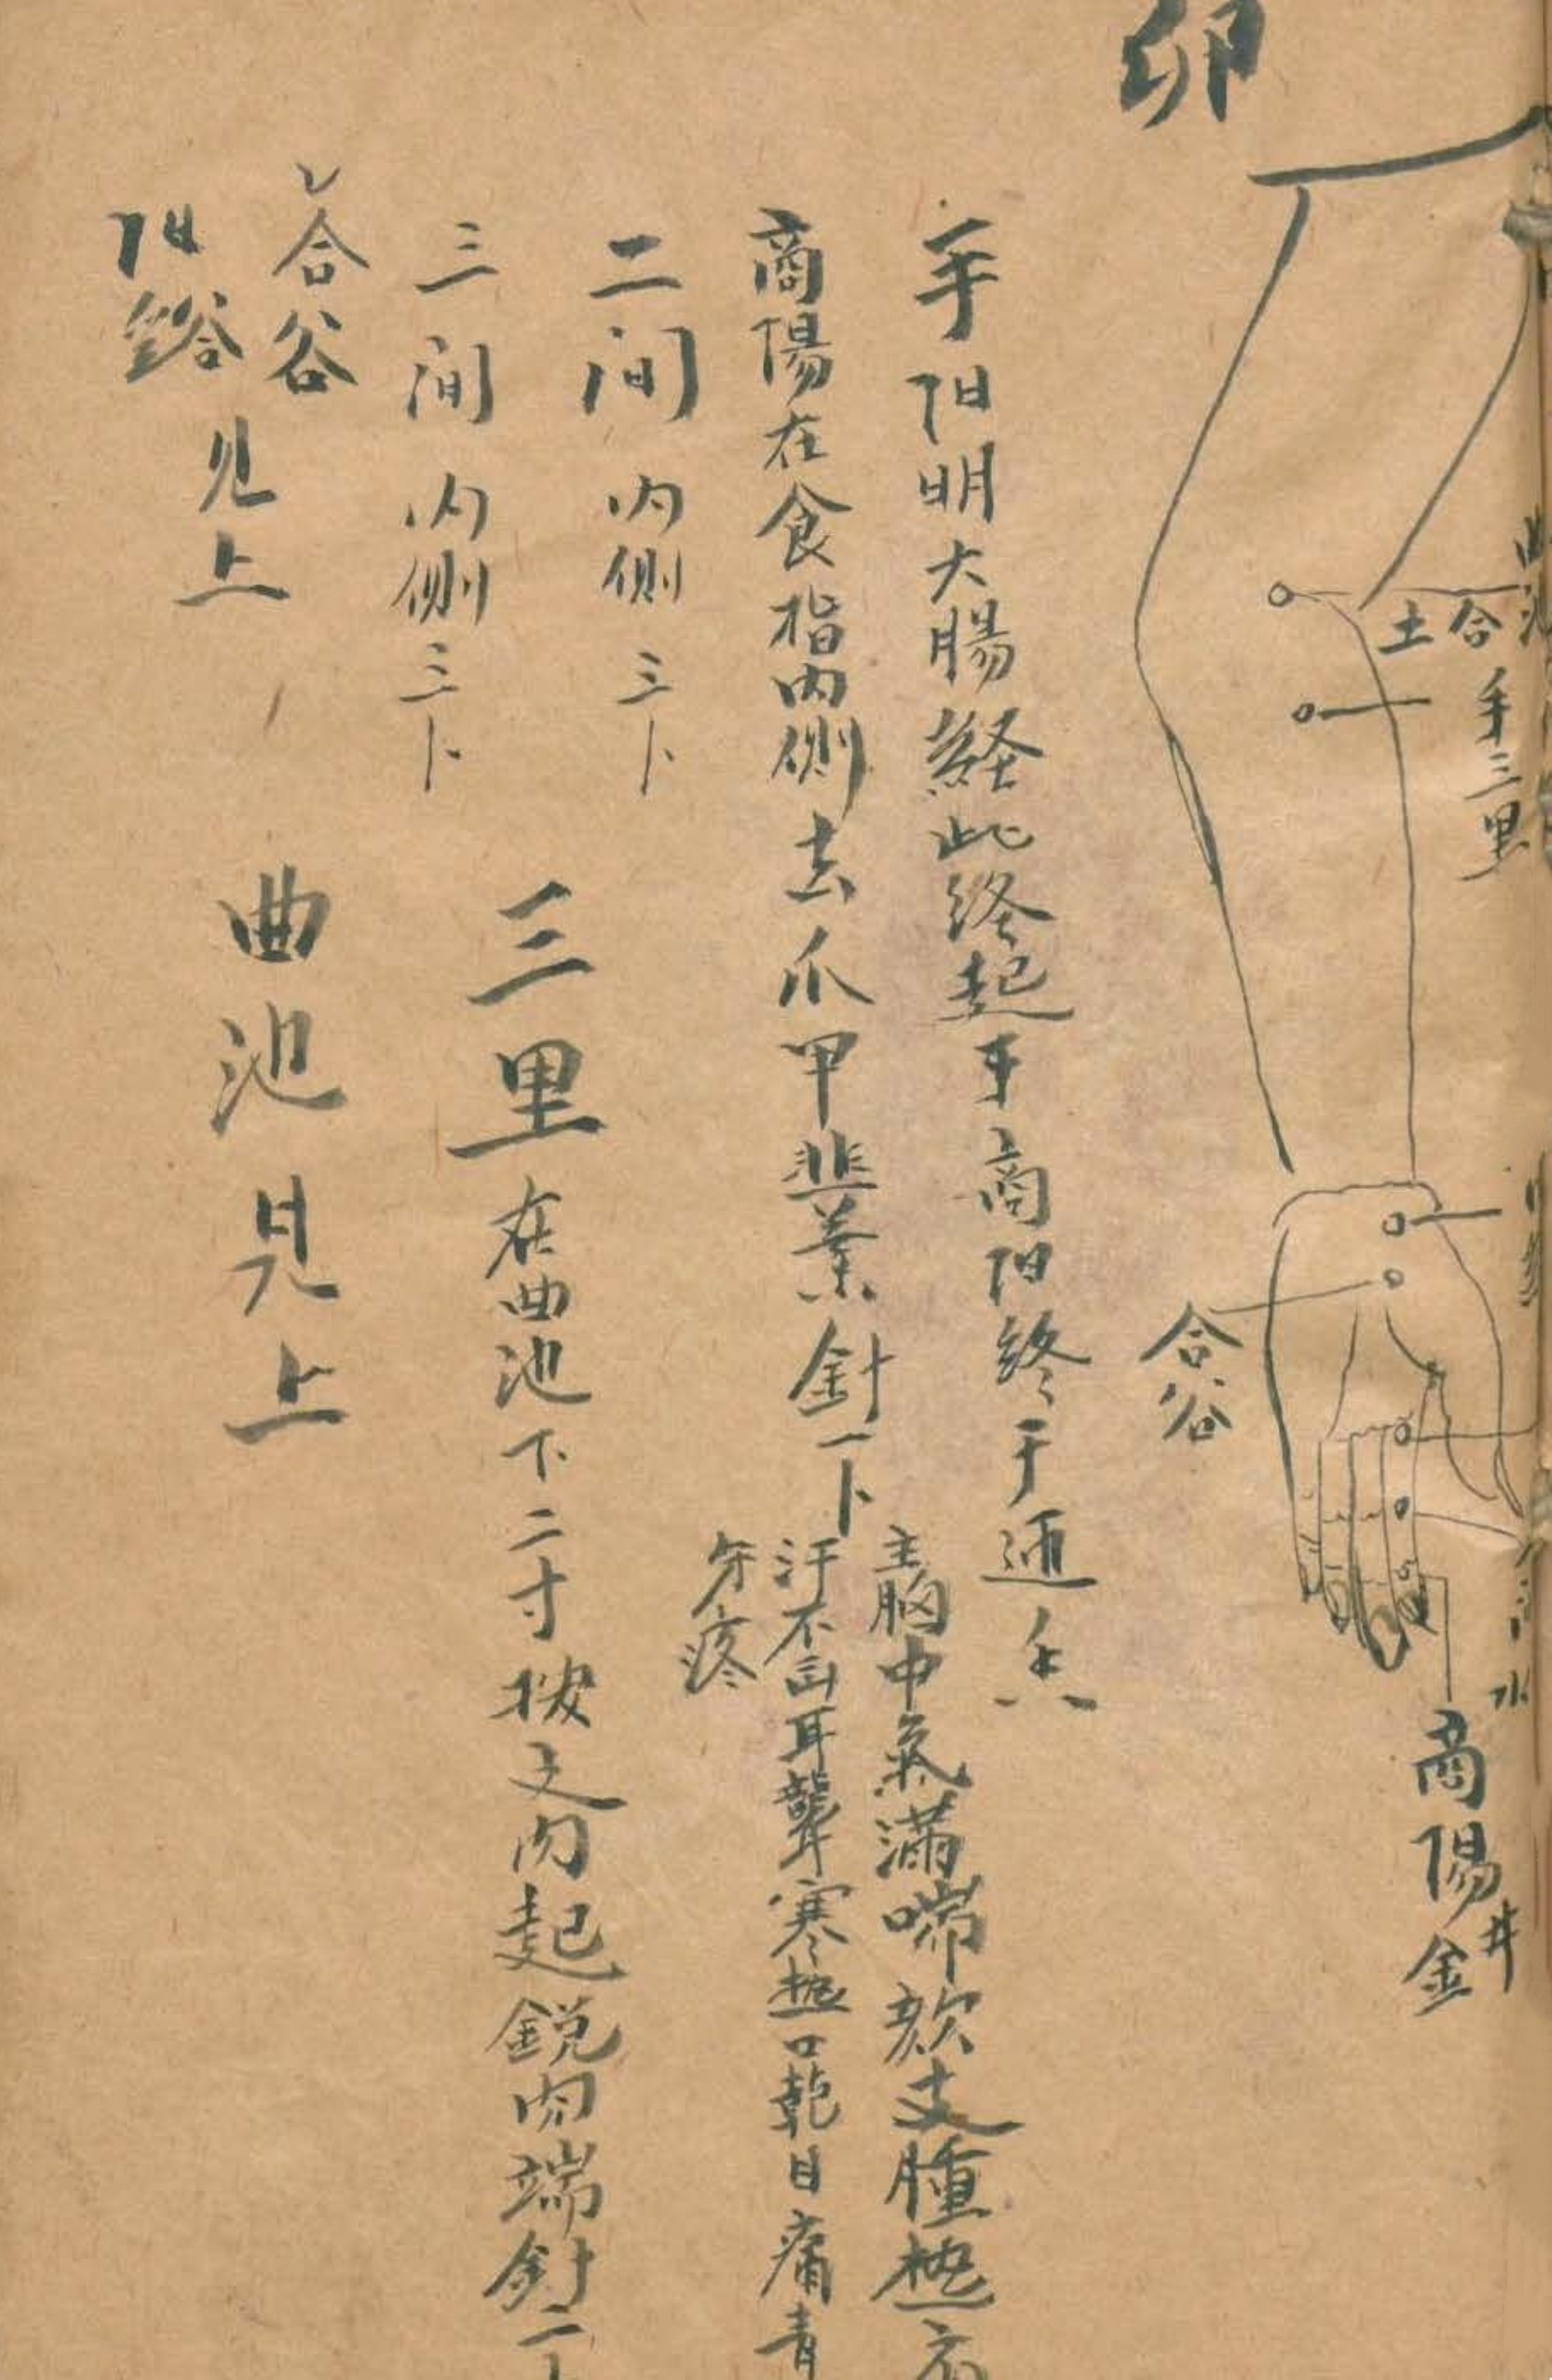 卯
曲池
合
土
手三里
合谷
商陽
井
金
水
手阳明大腸経此终起于商阳终于迎香
商陽在食指内側去爪甲韭葉針一卜
主胸中氣滿喘欬支腫
汗不出耳聾寒热口乾目痛青
牙疼
二间内侧三卜
三间内侧三卜
三里在曲池下二寸按之肉起銳肉端針二卜
合谷
阳谿
见上
曲池見上